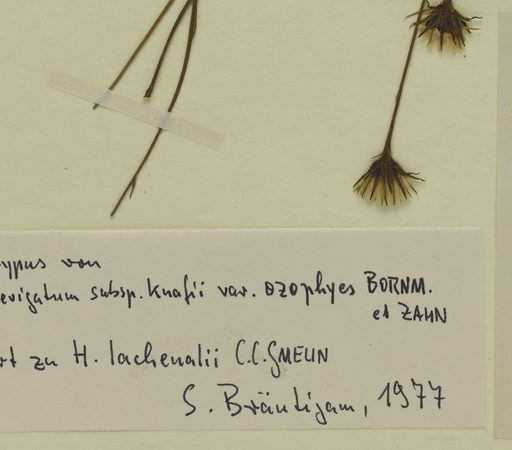 ypus von
evigatum subsp. Knafii var. ozophyes BORNM.
et ZAHN
rt zu H. lachenalii C.C. GMELIN
S. Bräutigam, 1977